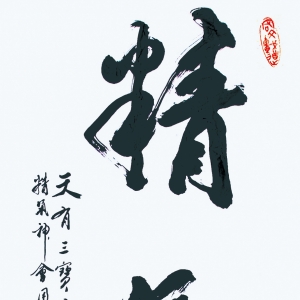 精
天有三寶
精氣神會用